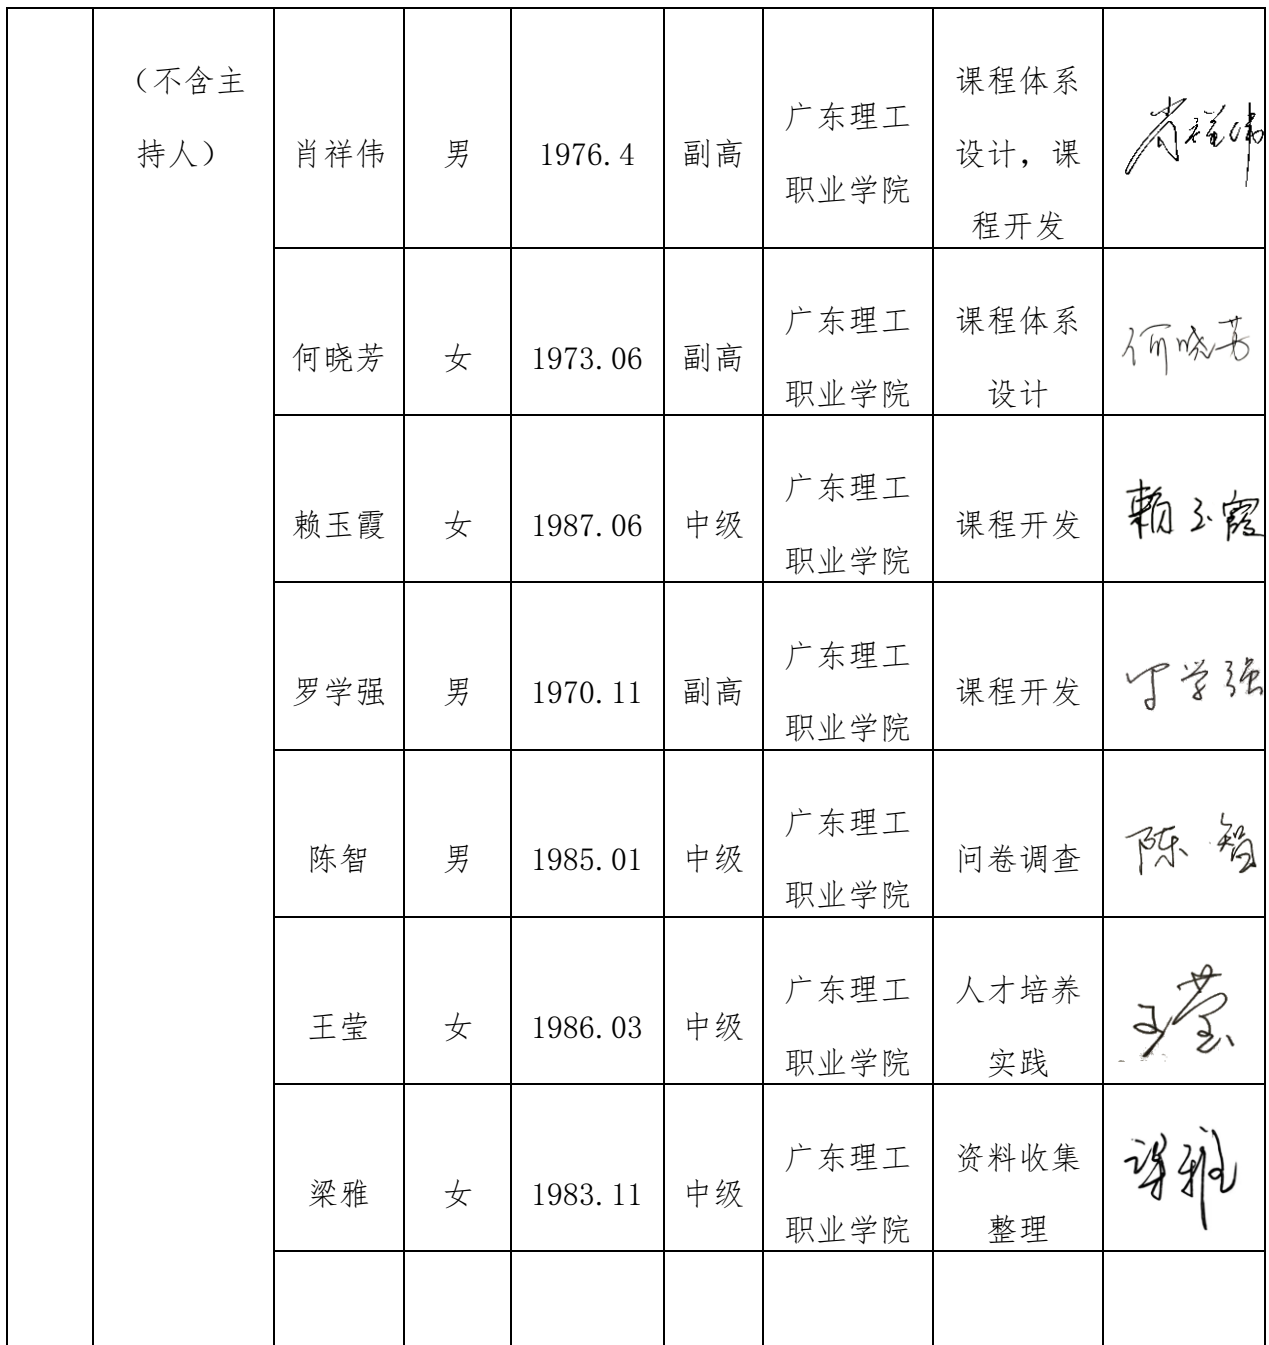 （不含主
持人）
肖祥伟
男
1976.4
副高
广东理工
职业学院
课程体系
设计，课
程开发
肖祥伟
何晓芳
女
1973.06
副高
广东理工
职业学院
课程体系
设计
何晓芳
赖玉霞
女
1987.06
中级
广东理工
职业学院
课程开发
赖玉霞
罗学强
男
1970.11
副高
广东理工
职业学院
课程开发
罗学强
陈智
男
1985.01
中级
广东理工
职业学院
问卷调查
陈智
王莹
女
1986.03
中级
广东理工
职业学院
人才培养
实践
王莹
梁雅
女
1983.11
中级
广东理工
职业学院
资料收集
整理
梁雅